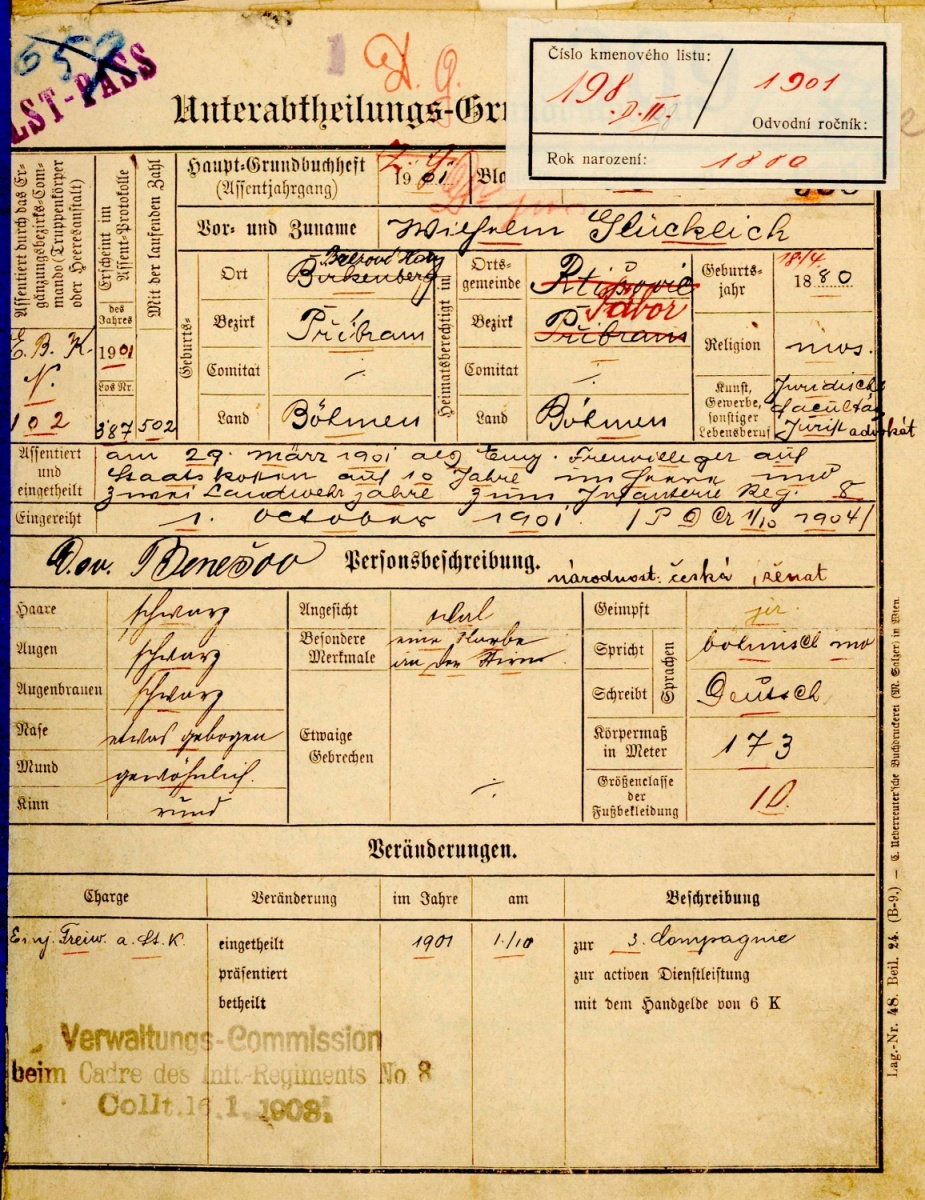 LST-PASS
1
Unterabtheilungs-Gr
Číslo kmenového listu:
198 / 1901
D. II.
Odvodní ročník:
Rok narození: 1880
Assentiert durch das Er-
gänzungsbezirks-Com-
mando (Truppenkörper
oder Heeresanstalt)
E. B. K.
N.
102
Erscheint im
Assent-Protokolle
des
Jahres
1901
Los Nr.
387
Mit der laufenden Zahl
502
Haupt-Grundbuchheft
(Assentjahrgang)
1901
Bla
Vor- und Zuname Wilhelm Glücklich
Geburts-
Ort Březové Hory
Birkenberg
Bezirk Příbram
Comitat ·/·
Land Böhmen
Heimatsberechtigt in
Orts-
gemeinde Rtišovic
Tábor
Bezirk Příbram
Comitat ·/·
Land Böhmen
Geburts-
jahr 18/4 1880
Religion mos.
Kunst,
Gewerbe,
sonstiger
Lebensberuf
Juridische
Facultät
Jurist advokát
Assentiert
und
eingetheilt
am 29. März 1901 als Einj. Freiwilliger auf
Staatskosten auf 10 Jahre im Heere und
zwei Landwehrjahre zum Infanterie Reg. 8
Eingereiht 1. October 1901. / P D Cr 1/10 1904/
Dov. Benešov
Personsbeschreibung.
národnost: česká, ženat
Haare schwarz
Augen schwarz
Augenbrauen schwarz
Nase etwas gebogen
Mund gewöhnlich.
Kinn rund
Angesicht oval
Besondere
Merkmale
eine Narbe
an der Stirne
Etwaige
Gebrechen
·/·
Geimpft ja.
Spricht
Schreibt
Sprachen
böhmisch und
Deutsch
Körpermaß
in Meter 173
Größenclasse
der
Fußbekleidung 10.
Veränderungen.
Charge Veränderung im Jahre am Beschreibung
Einj. Freiw. a. St. K. eingetheilt 1901 1./10 zur 3. Compagnie
präsentiert zur activen Dienstleistung
betheilt mit dem Handgelde von 6 K
Verwaltungs-Commission
beim Cadre des Inft.-Regiments No 8
Collt. 16. 1. 1908.
Lag.-Nr. 48. Beil. 24. (B-9.) — C. Ueberreuter'sche Buchdruckerei (M. Salzer) in Wien.